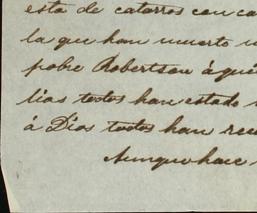 esta de catarros con ca
la que han muerto
pobre Robertson á qui
lias todos han estado
á Dios todos han
Aunque hace